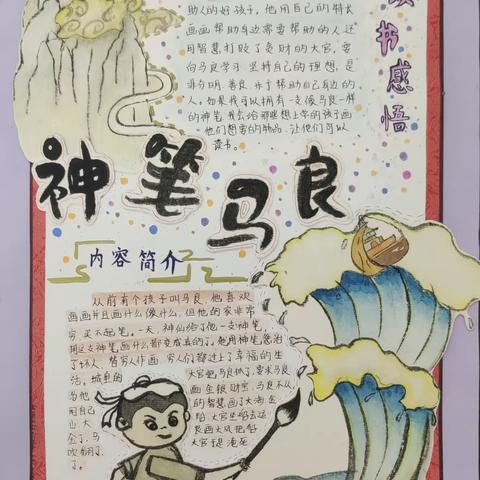 助人的好孩子，他用自己的特长
画画帮助身边需要帮助的人还
用智慧打败了贪财的大官，要
向马良学习 坚持自己的理想，是
非分明，善良，乐于帮助自己身边的
人，如果我可以拥有一支像马良一样
的神笔 我会给那些想上学的孩子画
他们想要的物品，让他们可以
读书。
读书感悟
神笔马良
内容简介
从前有个孩子叫马良，他喜欢
画画并且画什么像什么，但他的家非常
穷 买不起笔。一天，神仙给了他一支神笔，
用这支神笔画什么都变成真的了。他用神笔惩治
了坏人 替穷人作画 穷人们都过上了幸福的生
活，城里的 大官把马良抓了，要求马良
为他 画金银财宝，马良不从，
用自己 的智慧画了大海
山 大 大官坐船去运
金 了，马 良画大风把船
吹翻了 大官于是淹死
了。